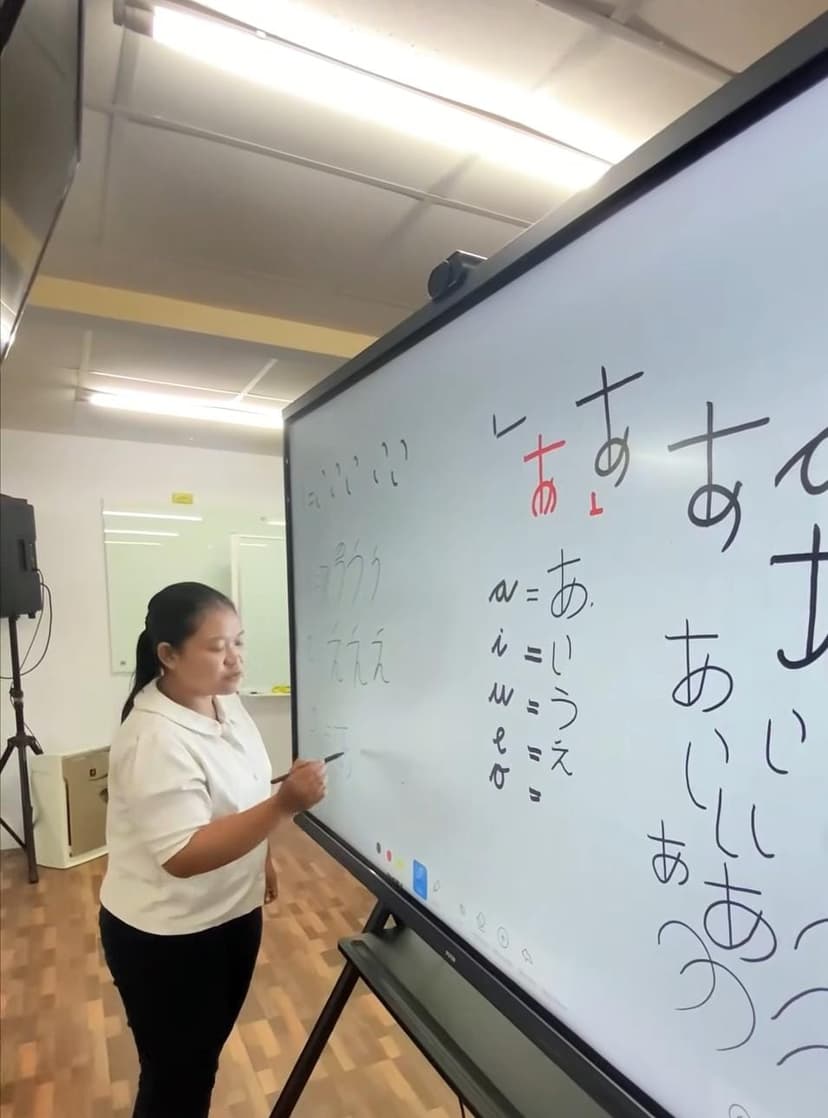 い い い い い
う う う
え え え
あ あ あ
a = あ
i = い
u = う
e = え
o =
あ
い い
い い
あ あ
う
う